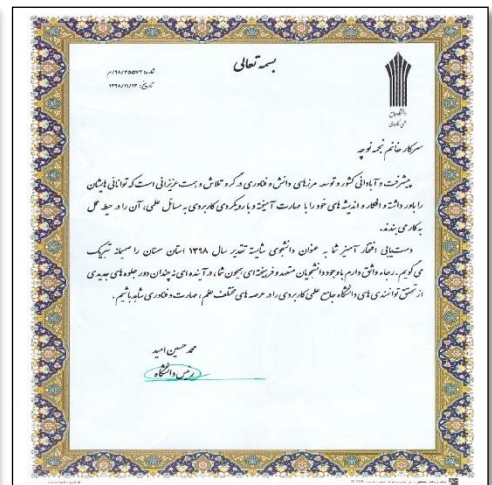 بسمه تعالی
شماره: ۹۸/۲۵۵۷۲/م
تاریخ: ۱۳۹۸/۱۱/۱۳
دانشگاه جامع
علمی کاربردی
سرکار خانم نجمه نوچه
پیشرفت و آبادانی کشور و توسعه مرزهای دانش و فناوری در گرو تلاش و همت عزیزانی است که توانایی هایشان
را باور داشته و افکار و اندیشه های خود را با مهارت آمیخته و با رویکردی کاربردی به مسائل علمی، آن را در حیطه عمل
به کار می بندند.
دست یابی افتخار آمیز شما به عنوان دانشجوی شایسته تقدیر سال ۱۳۹۸ استان سمنان را صمیمانه تبریک
می گویم. رجاء واثق دارم با وجود دانشجویان متعهد و فرهیخته ای همچون شما، در آینده ای نه چندان دور جلوه های جدیدی
از تحقق توانمندی های دانشگاه جامع علمی کاربردی را در عرصه های مختلف علم، مهارت و فناوری شاهد باشیم.
محمد حسین امید
رئیس دانشگاه